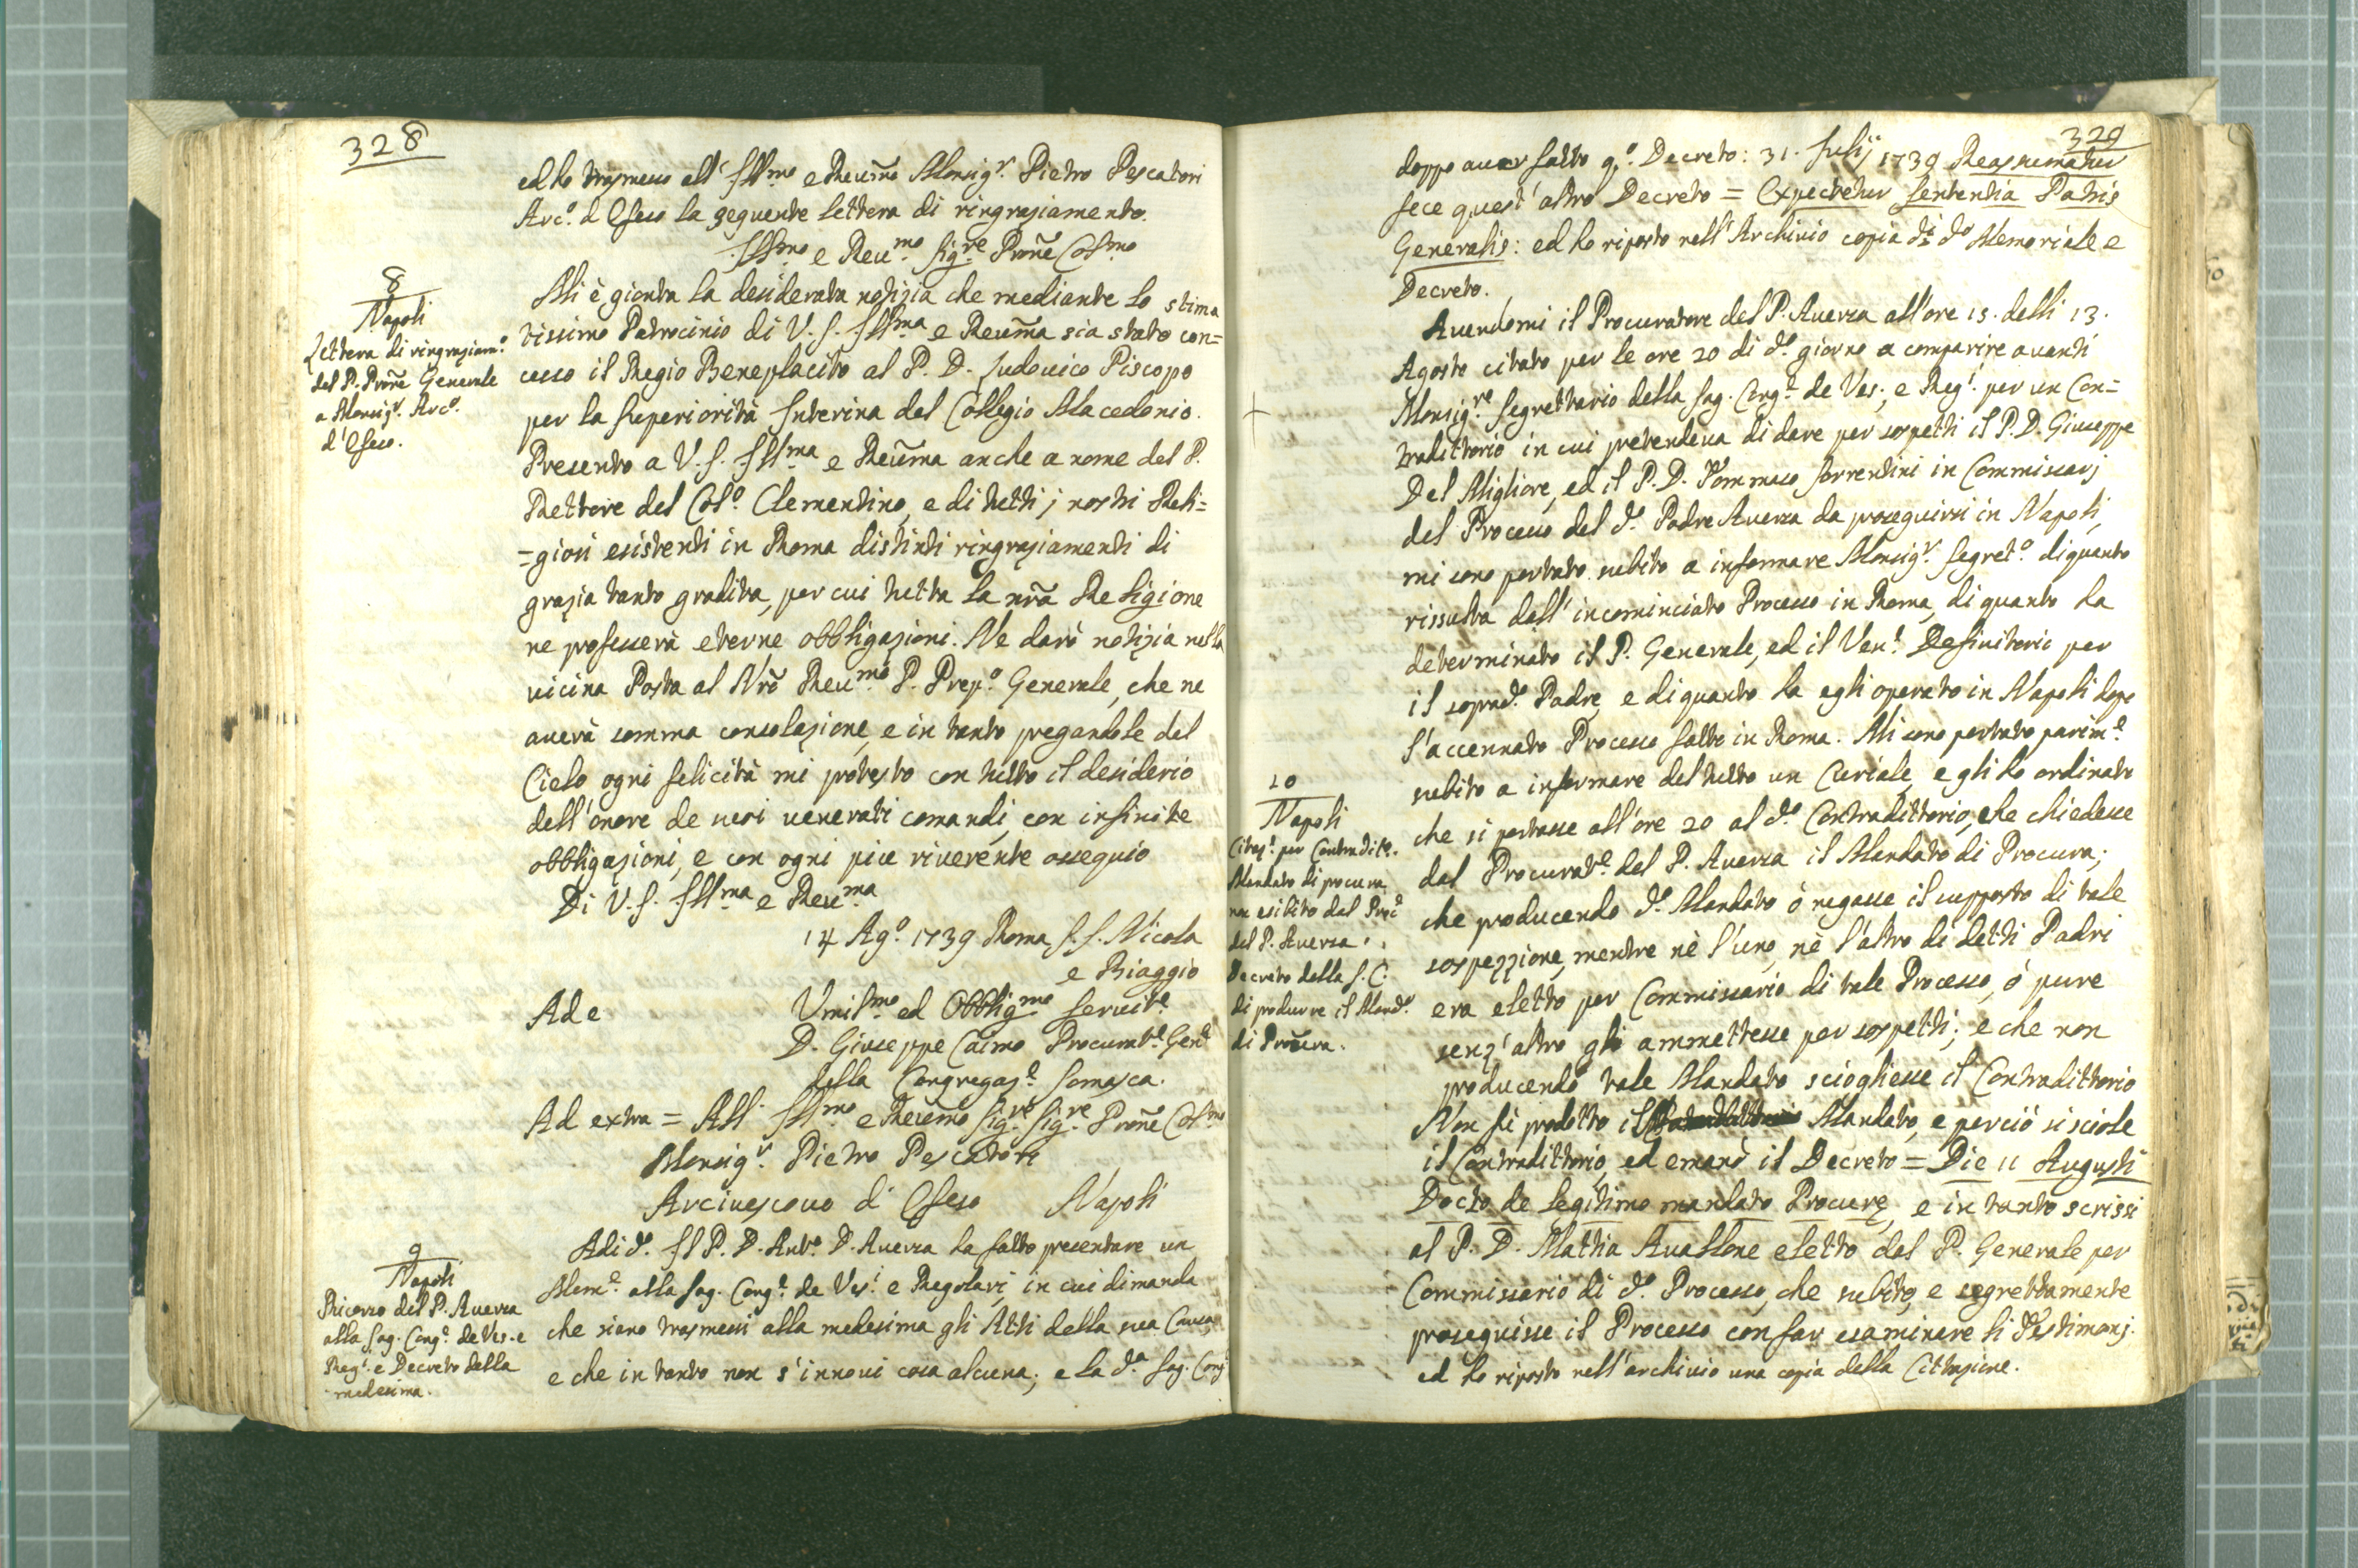 328
ed ho trasmesso all' Ill.mo e Reu͠mo Monsig.r Pietro Pescatori
Arc.o d'Efeso la seguente lettera di ringraziamento.
Ill.mo e Reu.mo Sig.re Pro͠ne Col.mo
8
Napoli
Lettera di ringraziam.o
del P. Pro͠ne Generale
a Monsig.r Arc.o
d'Efeso.
Mi è gionta la desiderata notizia che mediante lo stima
tissimo Patrocinio di V. S. Ill.ma e Reu͠ma sia stato con=
cesso il Regio Beneplacito al P. D. Ludouico Piscopo
per la Superiorità Interina del Collegio Macedonio.
Presento a V. S. Ill.ma e Reu͠ma anche a nome del P.
Rettore del Col.o Clementino, e di tutti j nostri Reli=
=giosi esistenti in Roma distinti ringraziamenti di
grazia tanto gradita, per cui tutta la nr͠a Religione
ne professerà eterne obbligazioni. Ne darò notizia nella
uicina Posta al Nr͠o Reu.mo P. Prep.o Generale, che ne
auerà somma consolazione, e in tanto pregandole dal
Cielo ogni felicità mi protesto con tutto il desiderio
dell'onore de suoi uenerati comandi, con infinite
obbligazioni, e con ogni piu riuerente ossequio
Di V. S. Ill.ma e Reu.ma
14 Ag.o 1739 Roma S. S. Nicola
e Biaggio
Ad e Vmil.mo ed Obblig.mo Seruit.e
D. Giuseppe Caimo Procurat.e Gen.e
della Congregaz.e Somasca.
Ad extra = All' Ill.mo e Reu͠mo Sig.re Sig.re Pro͠ne Col.mo
Monsig.r Pietro Pescatori
Arciuescouo di Efeso Napoli
9
Napoli
Ricorso del P. Auersa
alla Sag. Cong.e de Ves. e
Reg.i e Decreto della
medesima.
Adi d.o Il P. D. Ant.o D. Auersa ha fatto presentare un
Mem.e alla Sag. Cong.e de Ves.i e Regolari, in cui dimanda
che siano trasmessi alla medesima gli Atti della sua Causa
e che in tanto non s'innoui cosa alcuna; e la d.a Sag. Cong.
329
doppo auer fatto q.o Decreto: 31. Julij 1739 Reassumatur
fece quest'altro Decreto = Expectetur Sententia Patris
Generalis: ed ho riposto nell'Archiuio copia di d.o Memoriale e
Decreto.
Auendomi il Procuratore del P. Auersa all'ore 15. delli 13.
Agosto citato per le ore 20 di d.o giorno a comparire auanti
Monsig.re Segrettario della Sag. Cong.e de Ves. e Reg.i per un Con=
tradittorio in cui pretendeua di dare per sospetti il P. D. Giuseppe
Del Migliore, ed il P. D. Tommaso Sorrentini in Commissarj
del Processo del d.o Padre Auersa da proseguirsi in Napoli,
mi sono portato subito a informare Monsig.r Segret.o di quanto
rissulta dall'incominciato Processo in Roma, di quanto ha
determinato il P. Generale, ed il Ven.e Definitorio per
il soprad.o Padre, e di quanto ha egli operato in Napoli dopo
l'accennato Processo fatto in Roma. Mi sono portato parim.e
subito a informare del tutto un Curiale, e gli ho ordinato
che si portasse all'ore 20 al d.o Contradittorio, che chiedesse
dal Procurat.e del P. Auersa il Mandato di Procura;
che producendo d.o Mandato ò negasse il supposto di tale
sospezzione, mentre nè l'uno, nè l'altro di detti Padri
era eletto per Commissario di tale Processo, ò pure
senz'altro gli ammettesse per sospetti; e che non
producendo tale Mandato sciogliesse il Contradittorio
Non fù prodotto il Mandato, e perciò si sciolse
il Contradittorio, ed emanò il Decreto = Die 11 Augusti
Docto de legitimo mandato Procuræ, e in tanto scrissi
al P. D. Mattia Auallone eletto dal P. Generale per
Commissario di d.o Processo, che subito, e segrettamente
proseguisse il Processo con far esaminare li Testimonj.
ed ho riposto nell'archiuio una copia della Cittazione.
10
Napoli
Citaz.e per Contradit.o.
Mandato di procura
non esibito dal Proc.e
del P. Auersa.
Decreto della S. C.
di produrre il Mand.o
di Procura.